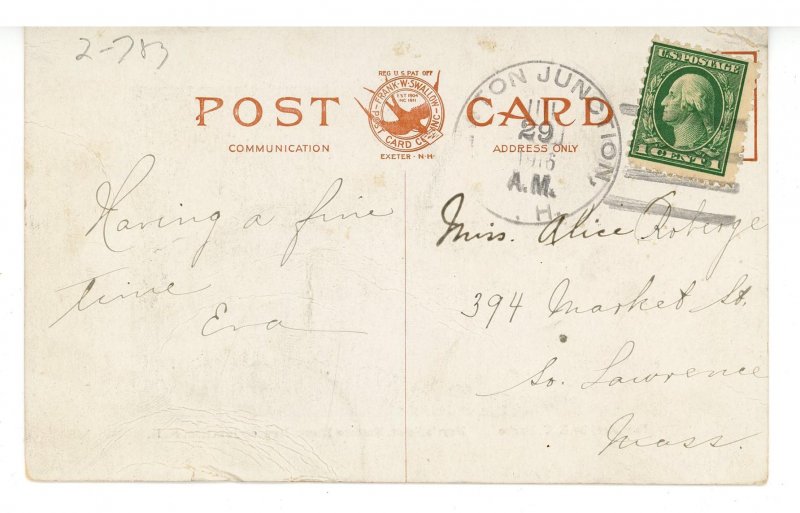 2-783
POST CARD
REG U.S PAT OFF
FRANK·W·SWALLOW
POST CARD CO INC
EST 1904
INC 1911
EXETER · N·H·
COMMUNICATION
ADDRESS ONLY
TON JUNCTION,
29
1916
A.M.
. H.
U.S. POSTAGE
1 CENT 1
Having a fine
time
Eva
Miss. Alice Roberge
394 Market St.
So. Lawrence
Mass.